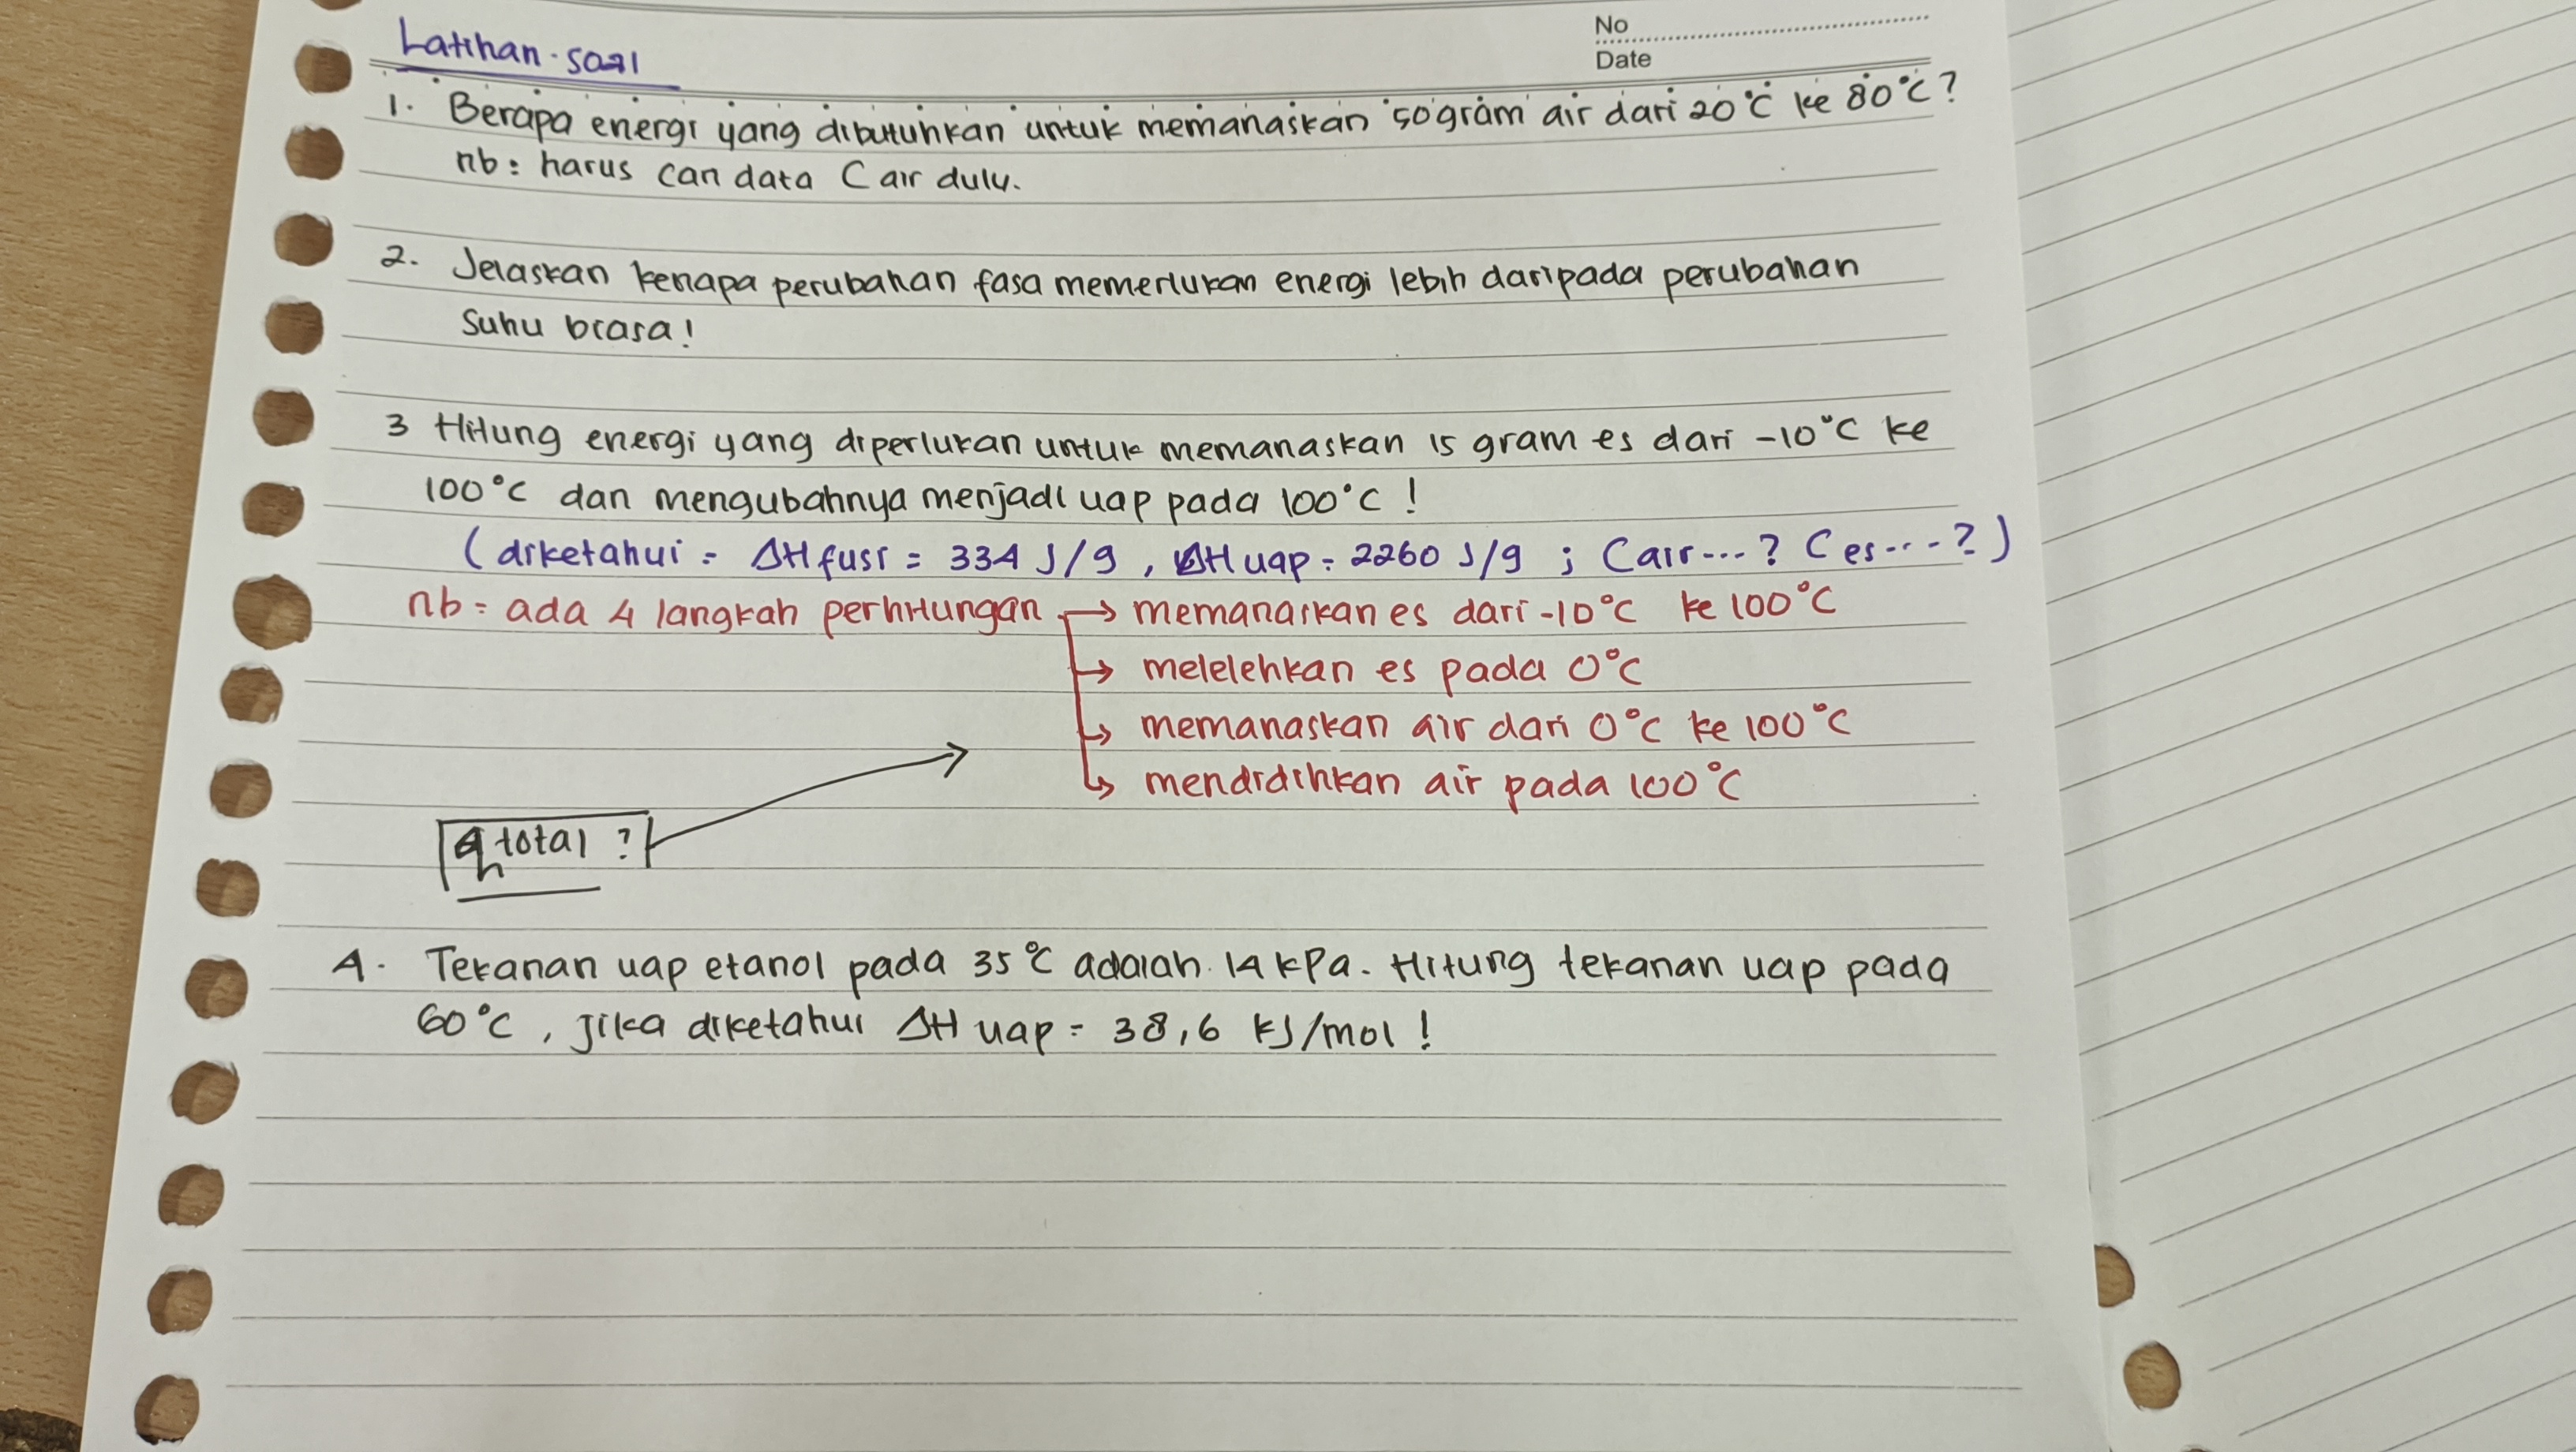 No
Date
Latihan soal
1. Berapa energi yang dibutuhkan untuk memanaskan 50 gram air dari 20°C ke 80°C?
nb: harus cari data C air dulu.
2. Jelaskan kenapa perubahan fasa memerlukan energi lebih daripada perubahan
suhu biasa!
3 Hitung energi yang diperlukan untuk memanaskan 15 gram es dari -10°C ke
100°C dan mengubahnya menjadi uap pada 100°C!
(diketahui = ΔH fusi = 334 J/g, ΔH uap = 2260 J/g ; C air...? C es....?)
nb = ada 4 langkah perhitungan → memanaskan es dari -10°C ke 100°C
↳ melelehkan es pada 0°C
↳ memanaskan air dari 0°C ke 100°C
↳ mendidihkan air pada 100°C
q total ?
4. Tekanan uap etanol pada 35°C adalah 14 kPa. Hitung tekanan uap pada
60°C, jika diketahui ΔH uap = 38,6 kJ/mol!